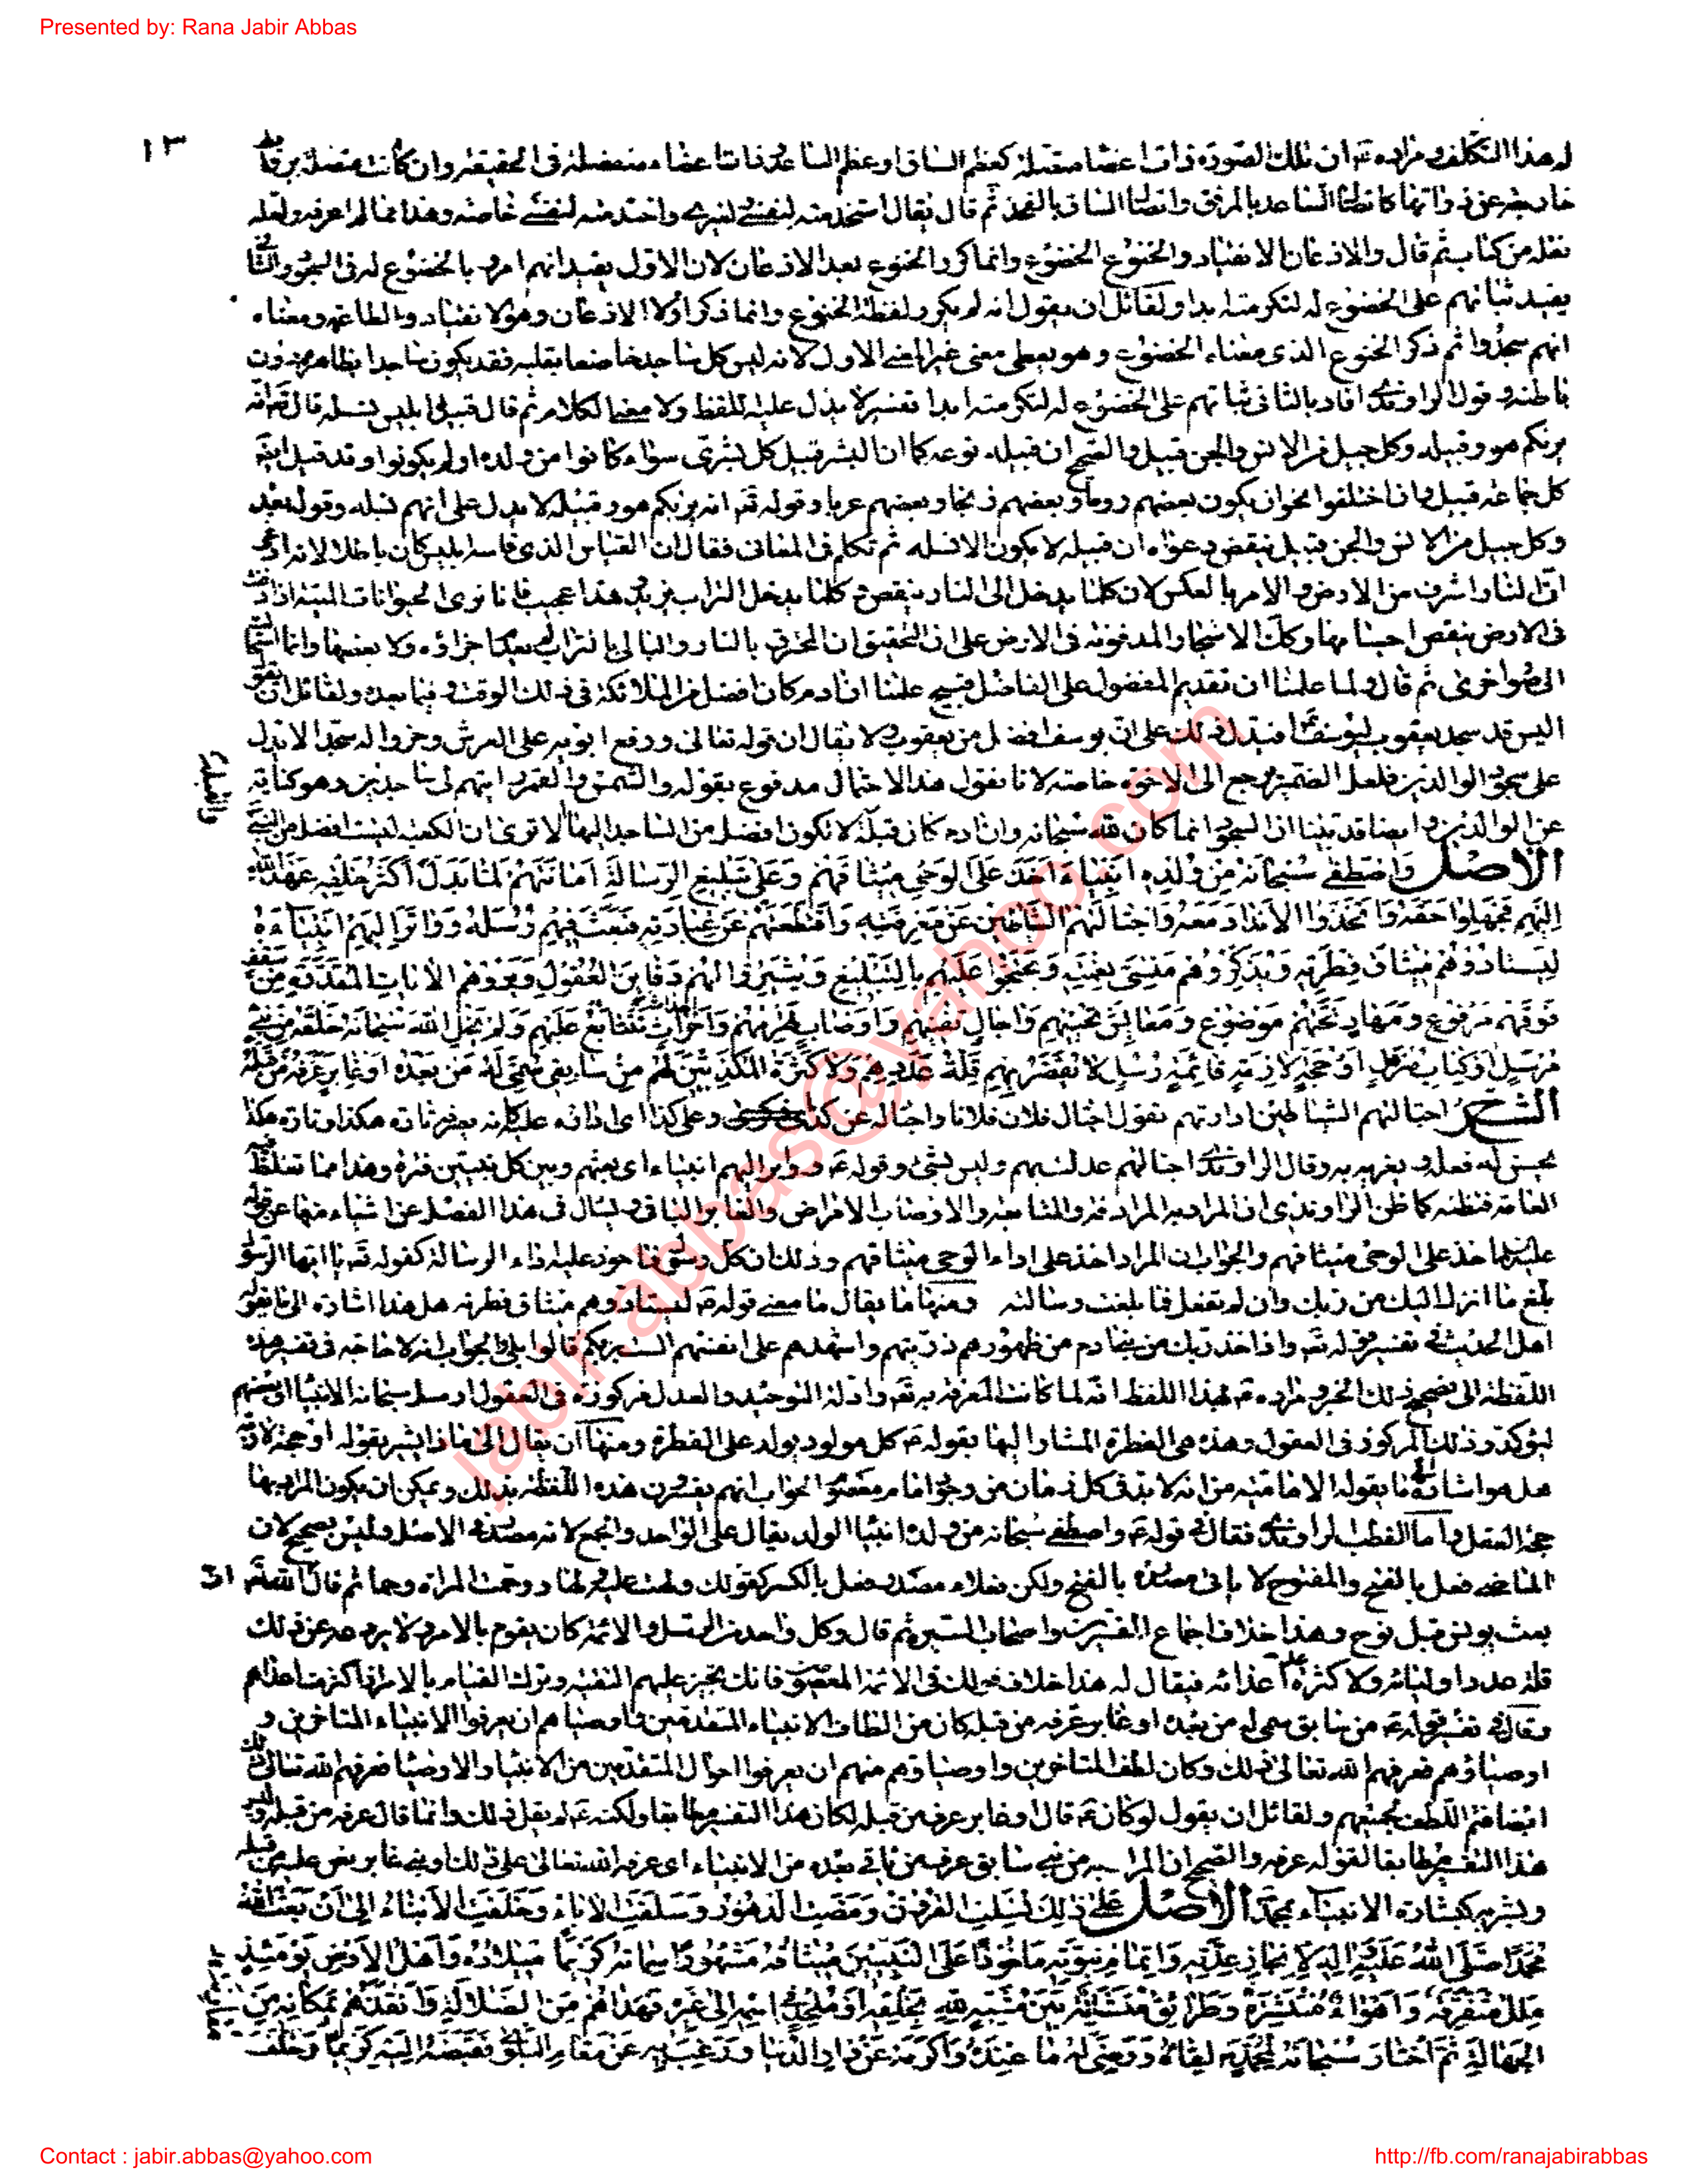 Presented by: Rana Jabir Abbas
١٣
لهذا التكلف ومراده ع ان تلك الصورة ذات اعضاء متصلة كعظم الساق او عظم الساعد وذات اعضاء منفصلة فى الحقيقة وان كانت متصلة
خارجة عن ذواتها كاتصال الساعد بالمرفق واتصال الساق بالفخذ ثم قال يقال استخدمته لنفسى ولغيرى واختدمته لنفسى خاصة وهذا مما لا اعرفه ولعله
نقله من كتاب ثم قال والاذعان الانقياد والخنوع الخضوع وانما كرر الخنوع بعد الاذعان لان الاول يفيد انهم امروا بالخضوع له فى السجود والثانى
يفيد ثباتهم على الخضوع له لتكرمته ابدا ولقائل ان يقول انه لم يكرر لفظة الخنوع وانما ذكر اولا الاذعان وهو الانقياد والطاعة ومعناه
انهم سجدوا ثم ذكر الخنوع الذى معناه الخضوع وهو يعطى معنى غير المعنى الاول لانه ليس كل ساجد خاضعا بقلبه فقد يكون ساجدا بظاهره دون
باطنه وقول الراوندى افاد بالثانى ثباتهم على الخضوع له لتكرمته ابدا تفسير لا يدل عليه اللفظ ولا معنى الكلام ثم قال قبيل ابليس نسله قال تعالى انه
يريكم هو وقبيله وكل جيل من الانس والجن قبيل والصحيح ان قبيله نوعه كما ان البشر قبيل كل بشرى سواء كانوا من ولده او لم يكونوا وقد قيل ايضا
كل جماعة قبيل وان اختلفوا نحو ان يكون بعضهم روما وبعضهم زنجا وبعضهم عربا وقوله تعالى انه يريكم هو وقبيله لا يدل على انهم نسله وقوله بعد
وكل جيل من الانس والجن قبيل ينقض دعواه ان قبيله لا يكون الا نسله ثم تكلم فى المعانى فقال ان القياس الذى قاسه ابليس كان باطلا لانه ادعى
ان النار اشرف من الارض والامر بالعكس لان كلما يدخل الى النار ينقص وكلما يدخل التراب يزيد وهذا عجيب فانا نرى الحيوانات الميتة اذا دفنت
فى الارض ينقص اجسامها وكذلك الاشجار المدفونة فى الارض على ان التحقيق ان المحترق بالنار والبالى بالتراب لم يعدم اجزاؤه ولا بعضها وانما استحالت
الى صور اخرى ثم قال ولما علمنا ان تقديم المفضول على الفاضل قبيح علمنا ان ادم كان افضل من الملائكة فى ذلك الوقت وفيما بعده ولقائل ان يقول
اليس قد سجد يعقوب ليوسف ع افيدل ذلك على ان يوسف افضل من يعقوب ولا يقال ان قوله تعالى ورفع ابويه على العرش وخروا له سجدا لا يدل
على سجود الوالدين فلعل الضمير يرجع الى الاخوة خاصة لانا نقول هذا الاحتمال مدفوع بقوله والشمس والقمر رايتهم لى ساجدين وهو كناية
عن الوالدين وايضا قد بينا ان السجود انما كان لله سبحانه وان ادم كان قبلة والقبلة لا تكون افضل من الساجد اليها الا ترى ان الكعبة ليست افضل من النبى
الاصل وَاصْطَفَى سُبْحَانَهُ مِنْ وُلْدِهِ أَنْبِيَاءَ أَخَذَ عَلَى الْوَحْيِ مِيثَاقَهُمْ وَعَلَى تَبْلِيغِ الرِّسَالَةِ أَمَانَتَهُمْ لَمَّا بَدَّلَ أَكْثَرُ خَلْقِهِ عَهْدَ اللَّهِ
إِلَيْهِمْ فَجَهِلُوا حَقَّهُ وَاتَّخَذُوا الْأَنْدَادَ مَعَهُ وَاجْتَالَتْهُمُ الشَّيَاطِينُ عَنْ مَعْرِفَتِهِ وَاقْتَطَعَتْهُمْ عَنْ عِبَادَتِهِ فَبَعَثَ فِيهِمْ رُسُلَهُ وَوَاتَرَ إِلَيْهِمْ أَنْبِيَاءَهُ
لِيَسْتَأْدُوهُمْ مِيثَاقَ فِطْرَتِهِ وَيُذَكِّرُوهُمْ مَنْسِيَّ نِعْمَتِهِ وَيَحْتَجُّوا عَلَيْهِمْ بِالتَّبْلِيغِ وَيُثِيرُوا لَهُمْ دَفَائِنَ الْعُقُولِ وَيُرُوهُمْ الْآيَاتِ الْمُقَدَّرَةِ مِنْ سَقْفٍ
فَوْقَهُمْ مَرْفُوعٍ وَمِهَادٍ تَحْتَهُمْ مَوْضُوعٍ وَمَعَايِشَ تُحْيِيهِمْ وَآجَالٍ تُفْنِيهِمْ وَأَوْصَابٍ تُهْرِمُهُمْ وَأَحْدَاثٍ تَتَتَابَعُ عَلَيْهِمْ وَلَمْ يُخْلِ اللَّهُ سُبْحَانَهُ خَلْقَهُ مِنْ نَبِيٍّ
مُرْسَلٍ أَوْ كِتَابٍ مُنْزَلٍ أَوْ حُجَّةٍ لَازِمَةٍ أَوْ مَحَجَّةٍ قَائِمَةٍ رُسُلٍ لَا تُقَصِّرُ بِهِمْ قِلَّةُ عَدَدِهِمْ وَلَا كَثْرَةُ الْمُكَذِّبِينَ لَهُمْ مِنْ سَابِقٍ سُمِّيَ لَهُ مَنْ بَعْدَهُ أَوْ غَابِرٍ عَرَّفَهُ مَنْ قَبْلَهُ
الشرح اجتالتهم الشياطين ادارتهم تقول اجتال فلان فلانا واجتاله عن كذا وعلى كذا اى اداره عليه كانه يصرفه تارة هكذا وتارة هكذا
يحسن له فعله ويغريه به وقال الراوندى اجتالتهم عدلت بهم وليس بشئ وقوله ع وواتر اليهم انبياءه اى بعثهم وبين كل نبيين فترة وهذا مما تغلط فيه
العامة فتظنه كما ظن الراوندى ان المراد به المرادفة والمتابعة والاوصاب الامراض والغابر الباقى ويسال فى هذا الفصل عن اشياء منها عن قوله
عليه السلام اخذ على الوحى ميثاقهم والجواب ان المراد اخذ على اداء الوحى ميثاقهم وذلك ان كل رسول ماخوذ عليه اداء الرسالة كقوله تعالى يا ايها الرسول
بلغ ما انزل اليك من ربك وان لم تفعل فما بلغت رسالته ومنها ما يقال ما معنى قوله ع ليستادوهم ميثاق فطرته هل هذا اشارة الى ما يقوله
اهل الحديث فى تفسير قوله تعالى واذ اخذ ربك من بنى ادم من ظهورهم ذريتهم واشهدهم على انفسهم الست بربكم قالوا بلى والجواب انه لا حاجة فى تفسير هذه
اللفظة الى تصحيح ذلك الخبر ومراده ع بهذا اللفظ انه لما كانت المعرفة به تعالى وادلة التوحيد والعدل مركوزة فى العقول ارسل سبحانه الانبياء او بعضهم
ليؤكدوا ذلك المركوز فى العقول وهذه هى الفطرة المشار اليها بقوله ع كل مولود يولد على الفطرة ومنها ان يقال الى ماذا يشير بقوله او حجة لازمة
هل هو اشارة الى ما يقوله الامامية من انه لا بد فى كل زمان من وجود امام معصوم الجواب انهم يفسرون هذه اللفظة بذلك ويمكن ان يكون المراد بها
حجة العقل واما القطب الراوندى فقال فى قوله ع واصطفى سبحانه من ولده انبياء الولد يقال على الواحد والجمع لانه مصدر فى الاصل وليس بصحيح لان
الماضى فعل بالفتح والمفتوح لا ياتى مصدره بالفتح ولكن فعلا مصدر فعل بالكسر كقولك ولهت عليه ولها ووحمت المراة وحما ثم قال ان الله تعالى
بعث يونس قبل نوح وهذا خلاف اجماع المفسرين واصحاب السير ثم قال وكل واحد من الرسل والائمة كان يقوم بالامر ولا يردعه عن ذلك
قلة عدد اوليائه ولا كثرة عدد اعدائه فيقال له هذا خلاف قولك فى الائمة المعصومين فانك تجيز عليهم التقية وترك القيام بالامر اذا كثرت اعداؤهم
وقال فى تفسير قوله ع من سابق سمى له من بعده او غابر عرفه من قبله كان من الطاف الانبياء المتقدمين واوصيائهم ان يعرفوا الانبياء المتاخرين و
اوصياؤهم فعرفهم الله تعالى ذلك وكان لطف المتاخرين واوصياؤهم منهم ان يعرفوا احوال المتقدمين من الانبياء والاوصياء فعرفهم الله تعالى ذلك
ايضا فتم اللطف لجميعهم ولقائل ان يقول لو كان ع قال او غابر عرف من قبله لكان هذا التفسير مطابقا ولكنه ع لم يقل ذلك وانما قال عرفه من قبله وليس
هذا التفسير مطابقا لقوله عرفه والصحيح ان المراد به من نبى سابق عرف من ياتى بعده من الانبياء اى عرفه الله تعالى ذلك او نبى غابر نص عليه من قبله
وبشر به كبشارة الانبياء بمحمد الاصل عَلَى ذَلِكَ نَسَلَتِ الْقُرُونُ وَمَضَتِ الدُّهُورُ وَسَلَفَتِ الْآبَاءُ وَخَلَفَتِ الْأَبْنَاءُ إِلَى أَنْ بَعَثَ اللَّهُ
مُحَمَّدًا صَلَّى اللَّهُ عَلَيْهِ وَآلِهِ لِإِنْجَازِ عِدَتِهِ وَإِتْمَامِ نُبُوَّتِهِ مَأْخُوذًا عَلَى النَّبِيِّينَ مِيثَاقُهُ مَشْهُورَةً سِمَاتُهُ كَرِيمًا مِيلَادُهُ وَأَهْلُ الْأَرْضِ يَوْمَئِذٍ
مِلَلٌ مُتَفَرِّقَةٌ وَأَهْوَاءٌ مُنْتَشِرَةٌ وَطَرَائِقُ مُتَشَتِّتَةٌ بَيْنَ مُشَبِّهٍ لِلَّهِ بِخَلْقِهِ أَوْ مُلْحِدٍ فِي اسْمِهِ إِلَى غَيْرِهِ فَهَدَاهُمْ مِنَ الضَّلَالَةِ وَأَنْقَذَهُمْ بِمَكَانِهِ مِنَ
الْجَهَالَةِ ثُمَّ اخْتَارَ سُبْحَانَهُ لِمُحَمَّدٍ لِقَاءَهُ وَرَضِيَ لَهُ مَا عِنْدَهُ وَأَكْرَمَهُ عَنْ دَارِ الدُّنْيَا وَرَغِبَ بِهِ عَنْ مَقَامِ الْبَلْوَى فَقَبَضَهُ إِلَيْهِ كَرِيمًا وَخَلَّفَ
jabir.abbas@yahoo.com
Contact : jabir.abbas@yahoo.com
http://fb.com/ranajabirabbas